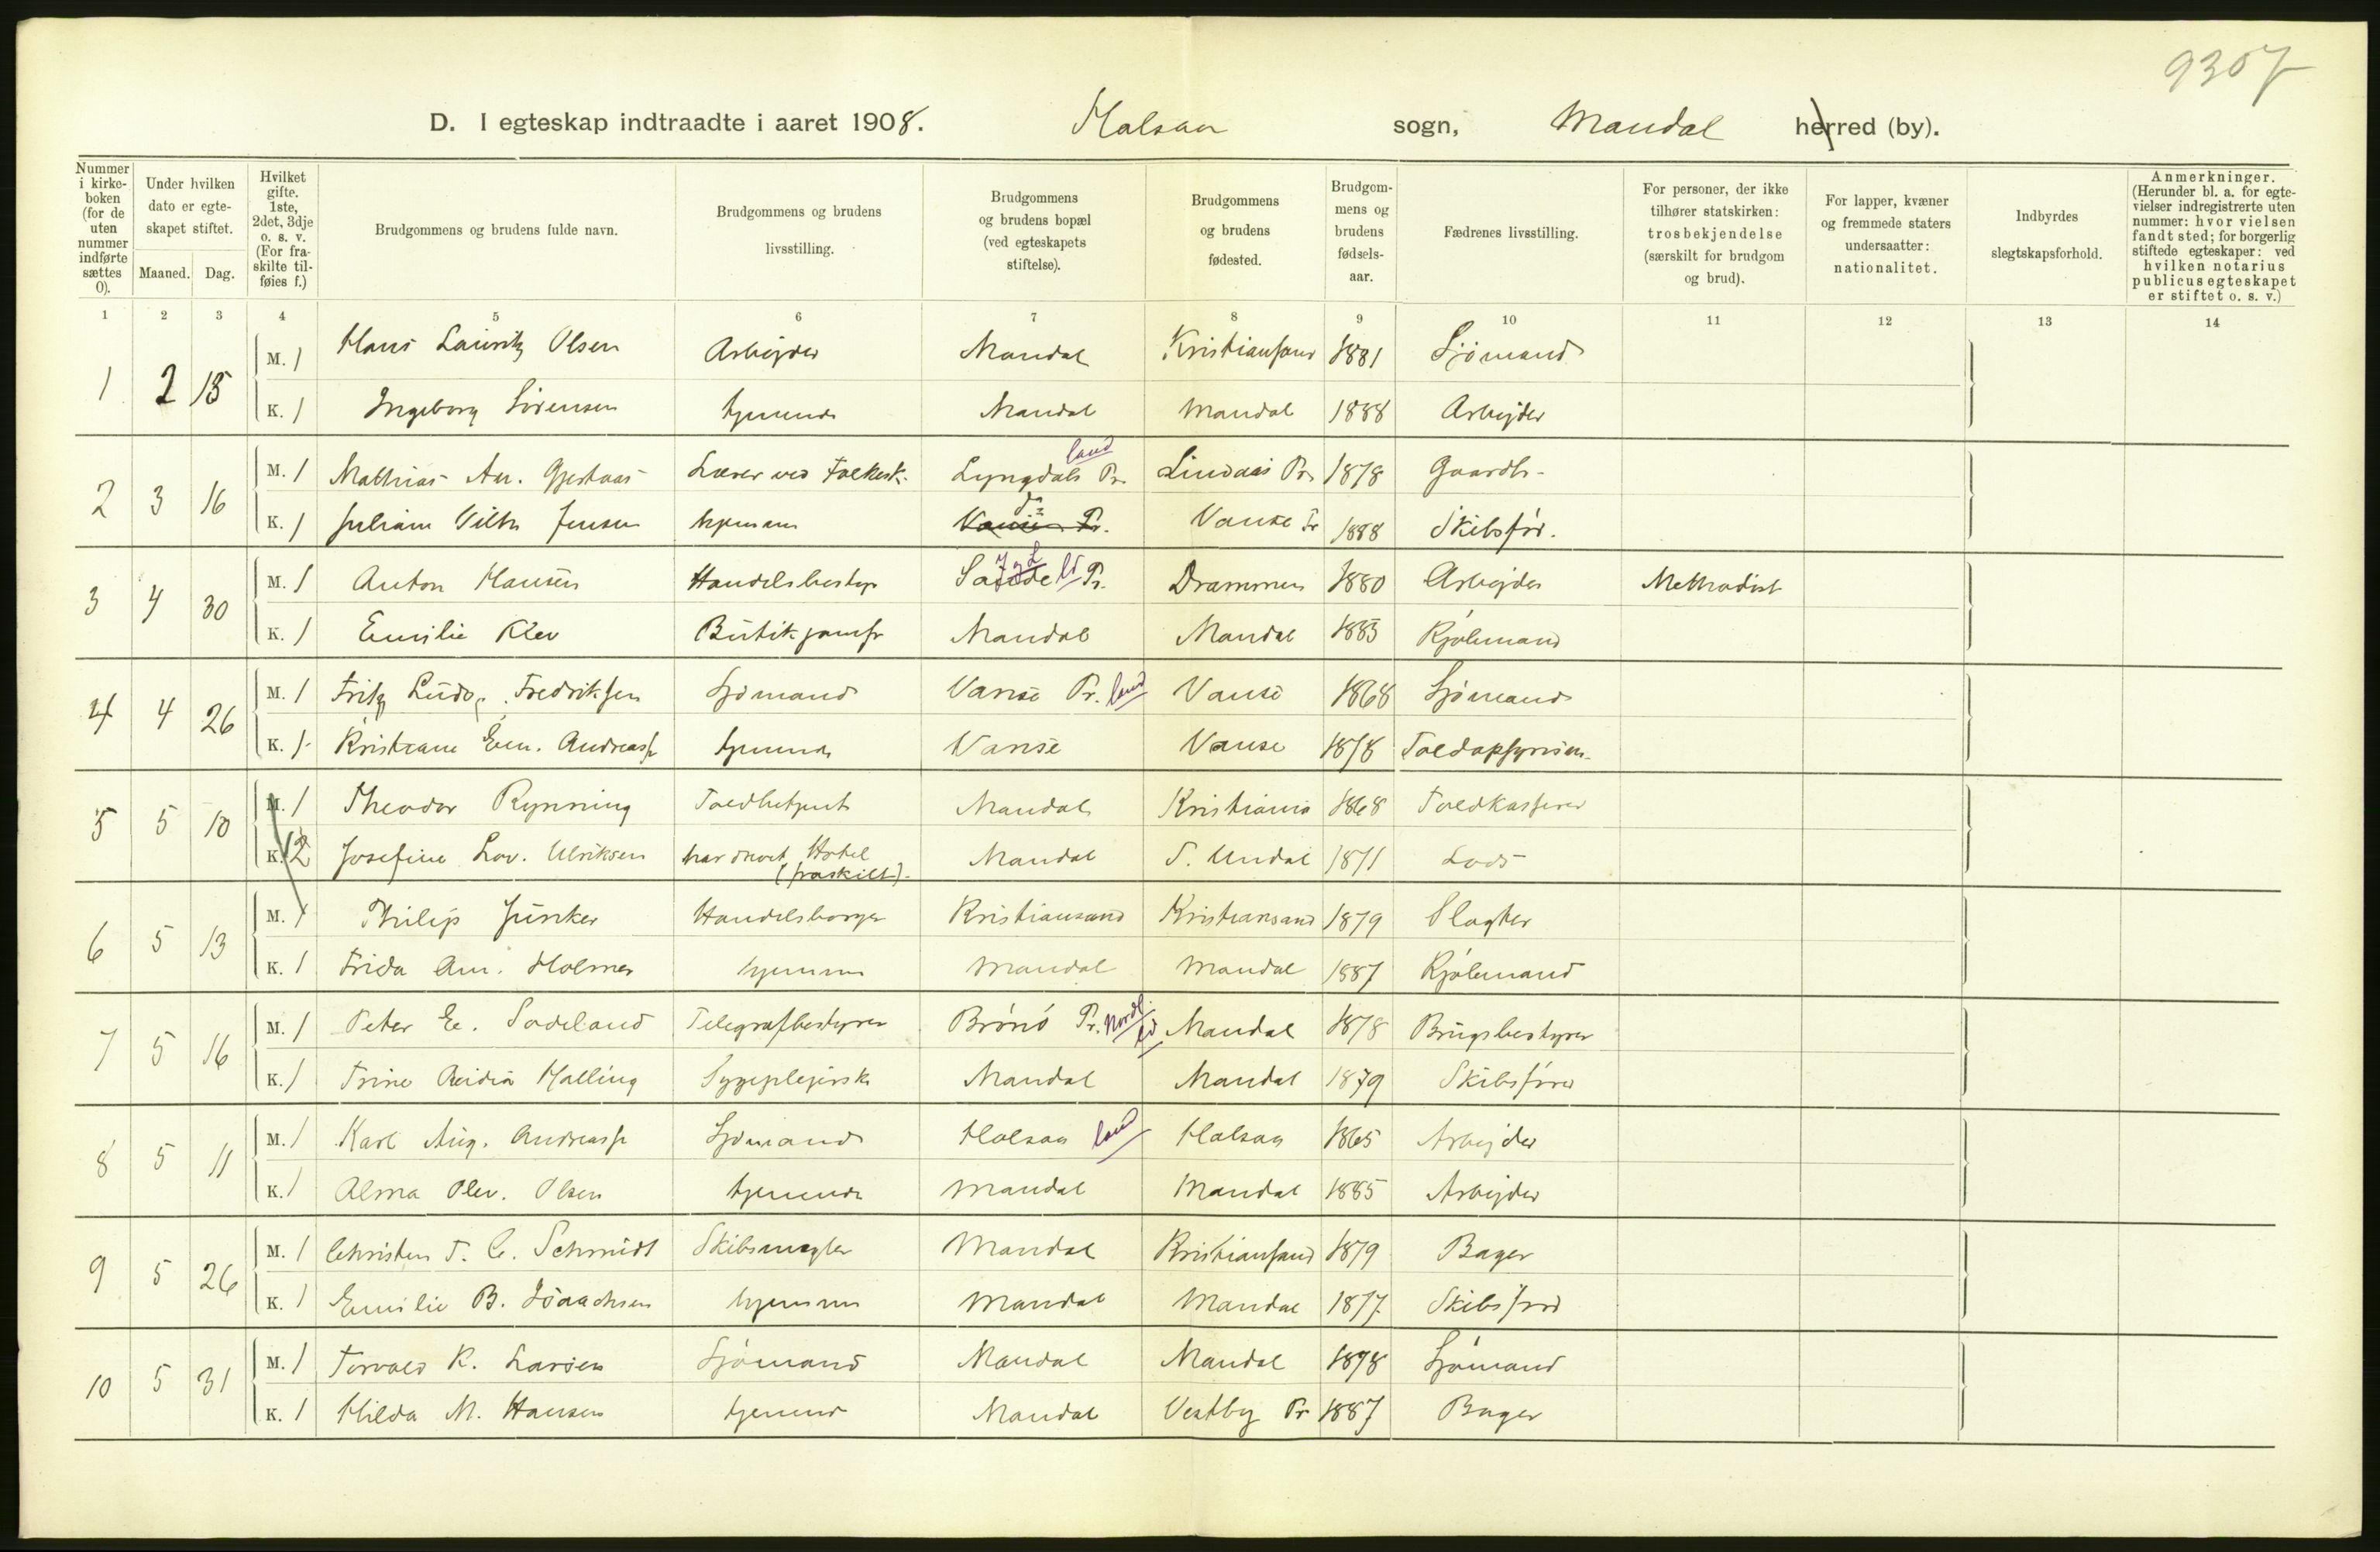 9307
D. I egteskap indtraadte i aaret 1908. Halsaa sogn, Mandal herred (by).
Nummer i kirkeboken (for de uten nummer indførte sættes 0).
Under hvilken dato er egteskapet stiftet.
Maaned. Dag.
Hvilket gifte. 1ste, 2det, 3dje o. s. v. (For fraskilte tilføies f.)
Brudgommens og brudens fulde navn.
Brudgommens og brudens livsstilling.
Brudgommens og brudens bopæl (ved egteskapets stiftelse).
Brudgommens og brudens fødested.
Brudgommens og brudens fødselsaar.
Fædrenes livsstilling.
For personer, der ikke tilhører statskirken: trosbekjendelse (særskilt for brudgom og brud).
For lapper, kvæner og fremmede staters undersaatter: nationalitet.
Indbyrdes slegtskapsforhold.
Anmerkninger. (Herunder bl. a. for egtevielser indregistrerte uten nummer: hvor vielsen fandt sted; for borgerlig stiftede egteskaper: ved hvilken notarius publicus egteskapet er stiftet o. s. v.)
1 2 3 4 5 6 7 8 9 10 11 12 13 14
1 2 15 M. 1 Hans Lauritz Olsen Arbejder Mandal Kristiansand 1881 Sjömand
K. 1 Ingeborg Sörensen hjemme Mandal Mandal 1888 Arbejder
2 3 16 M. 1 Mathias An. Lærer ved Folkesk. Lyngdals Pr. land Lindaas Pr. 1878 Gaardbr.
K. 1 Juliane Vilh. Jensen hjemme Vanse Pr. do Vanse Pr 1888 Skibsför.
3 4 30 M. 1 Anton Hansen Handelsbestyr Pr. Drammen 1880 Arbejder Methodist
K. 1 Emilie Klev Butikjomfr Mandal Mandal 1883 Kjöbmand
4 4 26 M. 1 Fritz Ludv. Fredriksen Sjömand Vanse Pr. land Vanse 1868 Sjömand
K. 1 Kristiane Em. Andreass hjemme Vanse Vanse 1878 Toldopsynsm.
5 5 10 M. 1 Theodor Rynning Toldbetjent Mandal Kristiania 1868 Toldkasserer
K. 2 Josefine Lov. Ulriksen har drevet Hotel (fraskilt). Mandal S. Undal 1871 Lods
6 5 13 M. 1 Philip Junker Handelsborger Kristiansand Kristiansand 1879 Slagter
K. 1 Frida Am. Holmer hjemme Mandal Mandal 1887 Kjöbmand
7 5 16 M. 1 Peter E. Sodeland Telegrafbestyrer Brönö Pr. Nordl. ld Mandal 1878 Brugsbestyrer
K. 1 Trine Malling Sygeplejersk Mandal Mandal 1879 Skibsförer
8 5 11 M. 1 Karl Aug. Andreass Sjömand Halsaa land Halsaa 1865 Arbejder
K. 1 Alma Olev. Olsen hjemme Mandal Mandal 1885 Arbejder
9 5 26 M. 1 Christen T. C. Schmidt Skibsmegler Mandal Kristiansand 1879 Bager
K. 1 Emilie B. Isaachsen hjemme Mandal Mandal 1877 Skibsförer
10 5 31 M. 1 Torvald K. Larsen Sjömand Mandal Mandal 1878 Sjömand
K. 1 Hilda M. Hansen hjemme Mandal Vestby Pr 1887 Bager